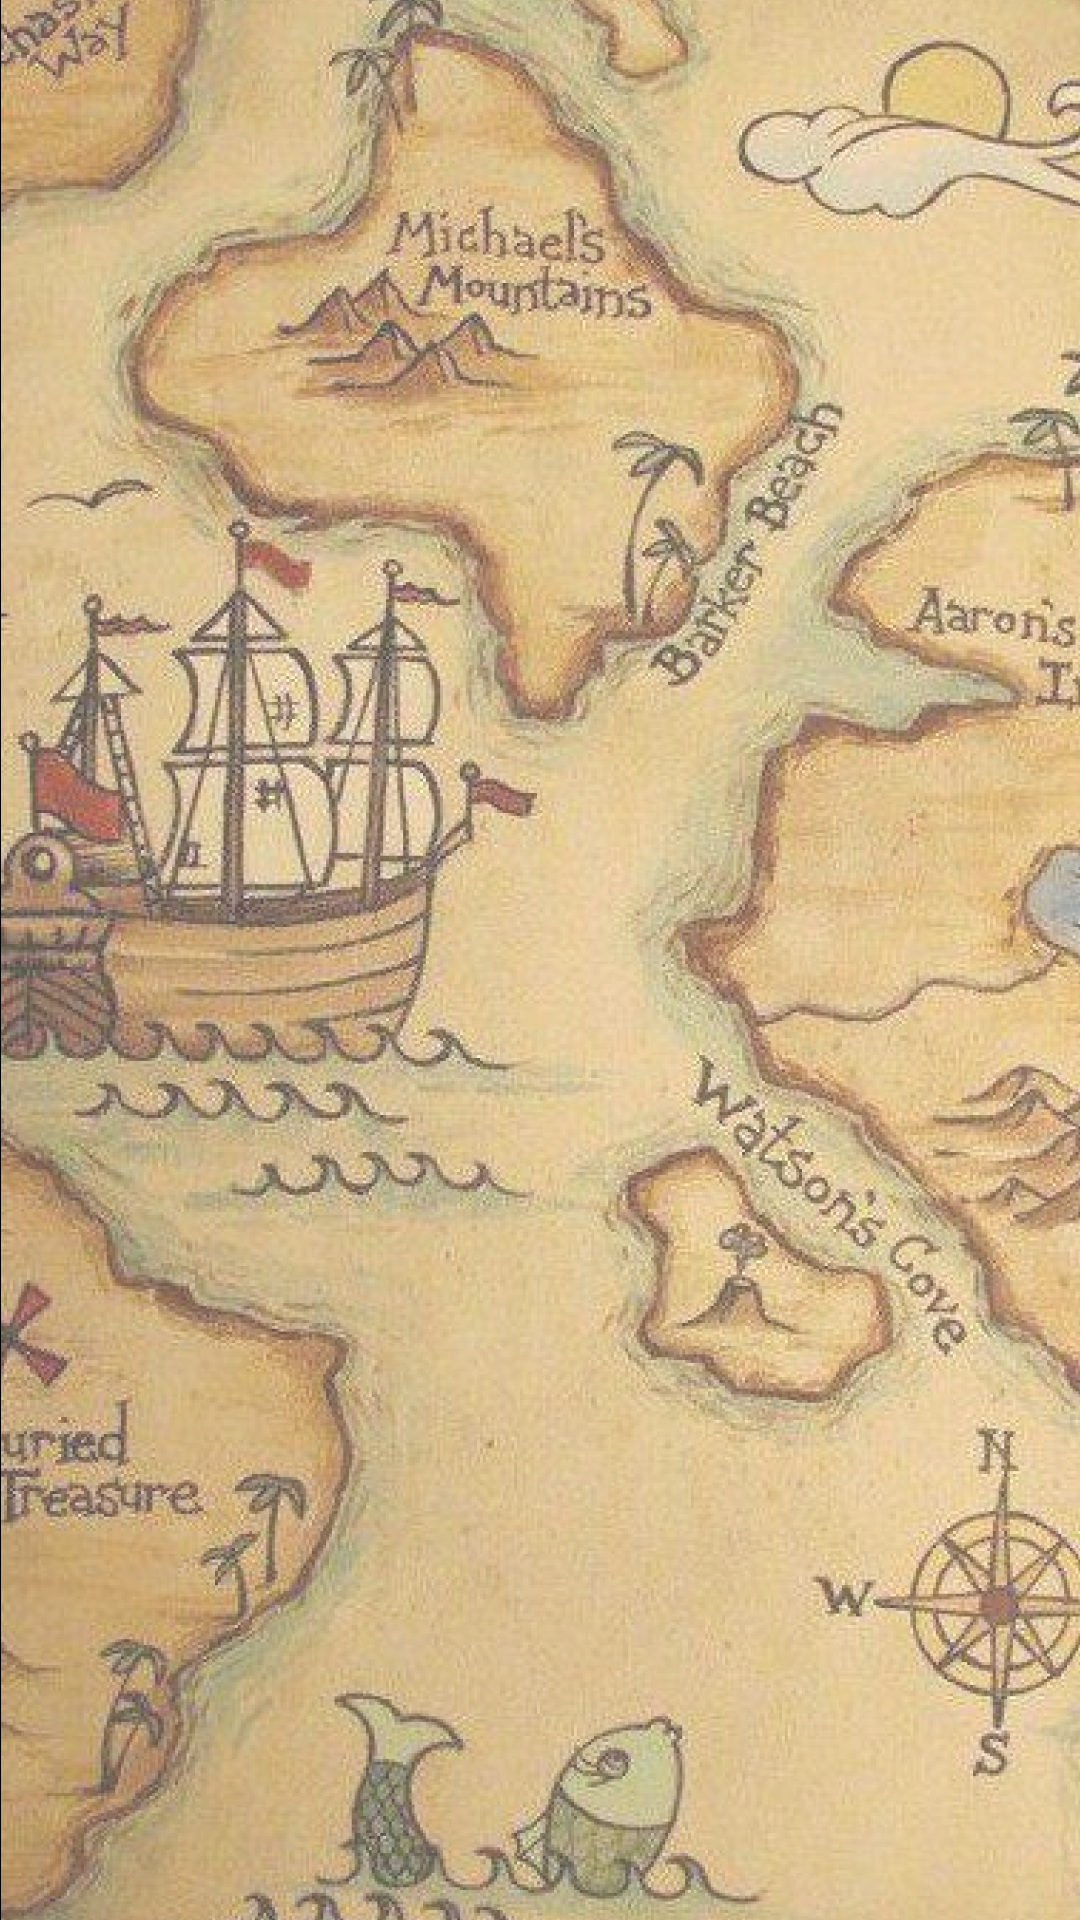 Way
Michael's
Mountains
Barker Beach
Aaron's
Watson's Cove
uried
Treasure
N
W
S